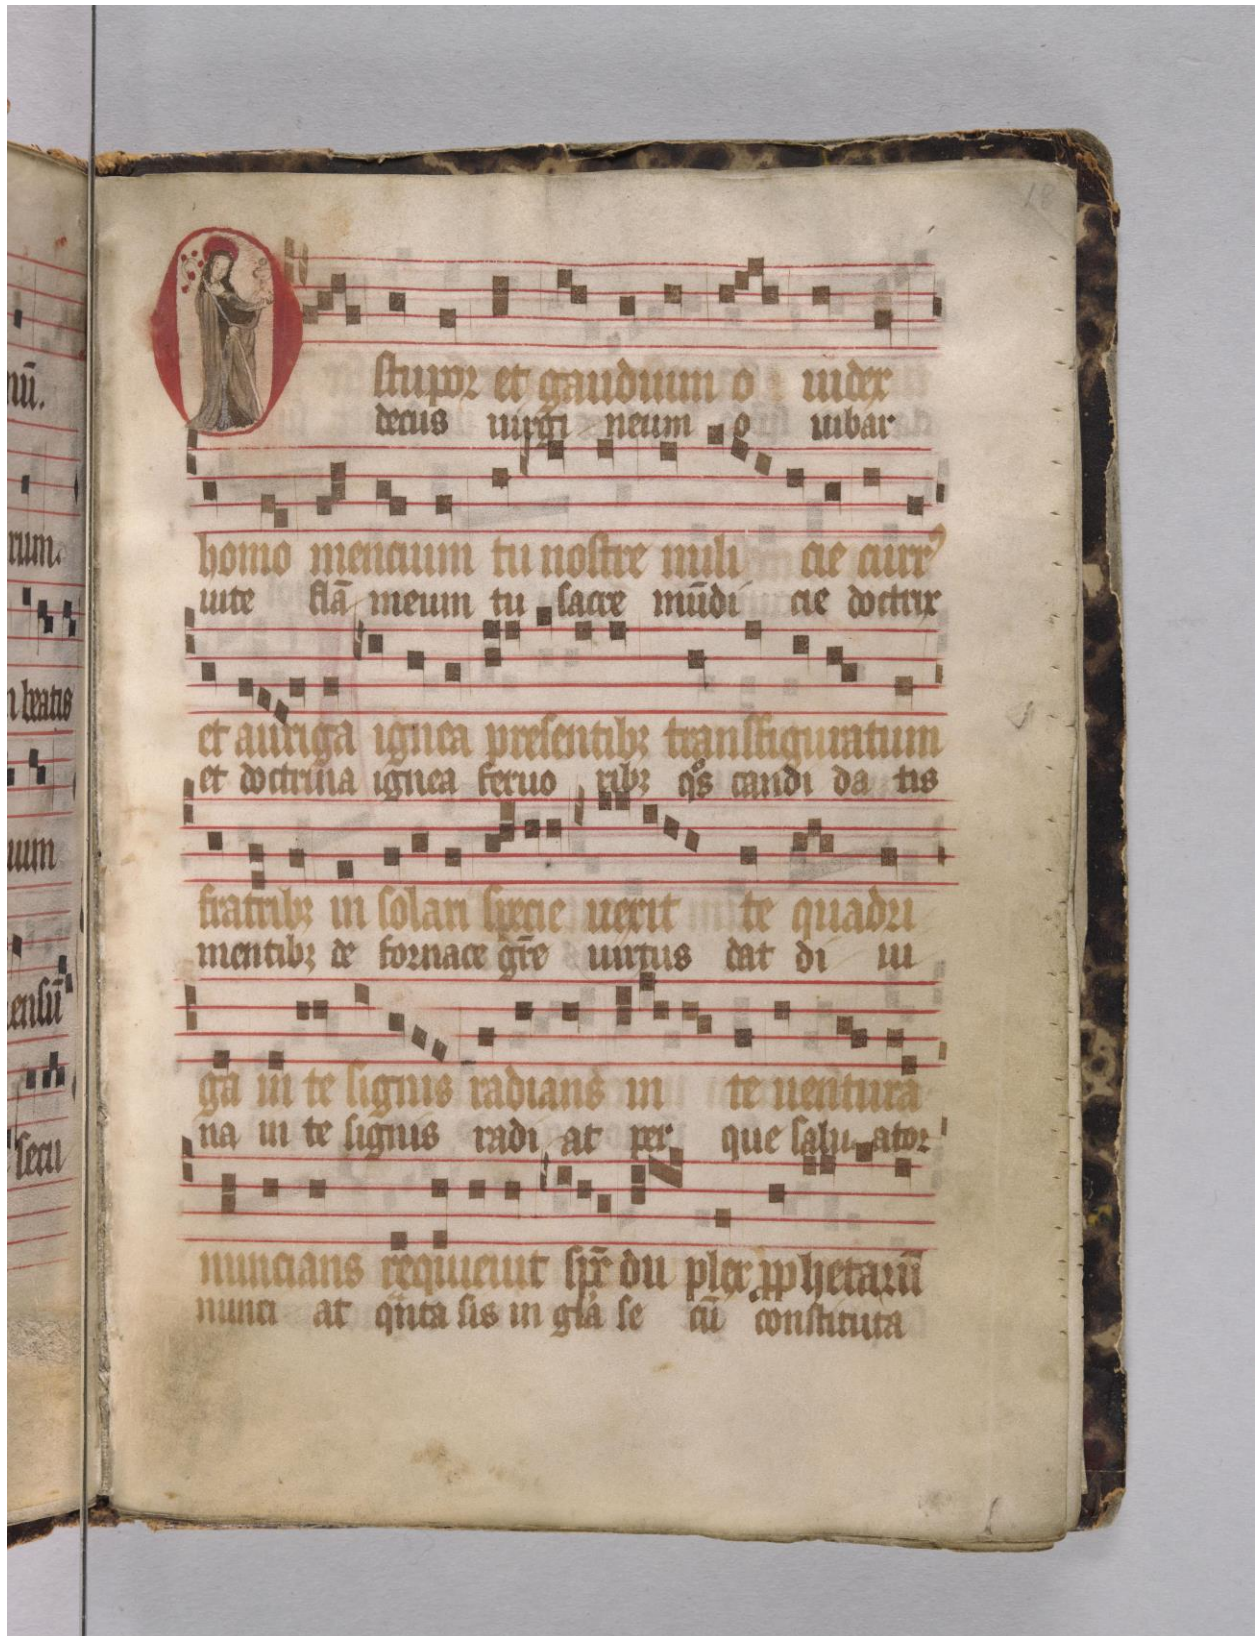 18
O stupor et gaudium o iudex
decus uirgi neum o iubar
homo mencium tu nostre mili cie curr⁊
uite flā meum tu sacre mūdi cie doctrix
et auriga ignea presentibꝫ transfiguratum
et doctrina ignea feruo ribꝫ qͦs candi da tis
fratribꝫ in solari specie uexit te quadri
mentibꝫ de fornace gr̄e uirtus dat di ui
ga in te signis radians in te uentura
na in te signis radi at per que salu ator
nuncians requieuit sp̄r du plex ꝓphetarū
nunci at qn̄ta sis in gl̄a se cū constituta
nū.
rum.
n beatis
uum
ensū
secu